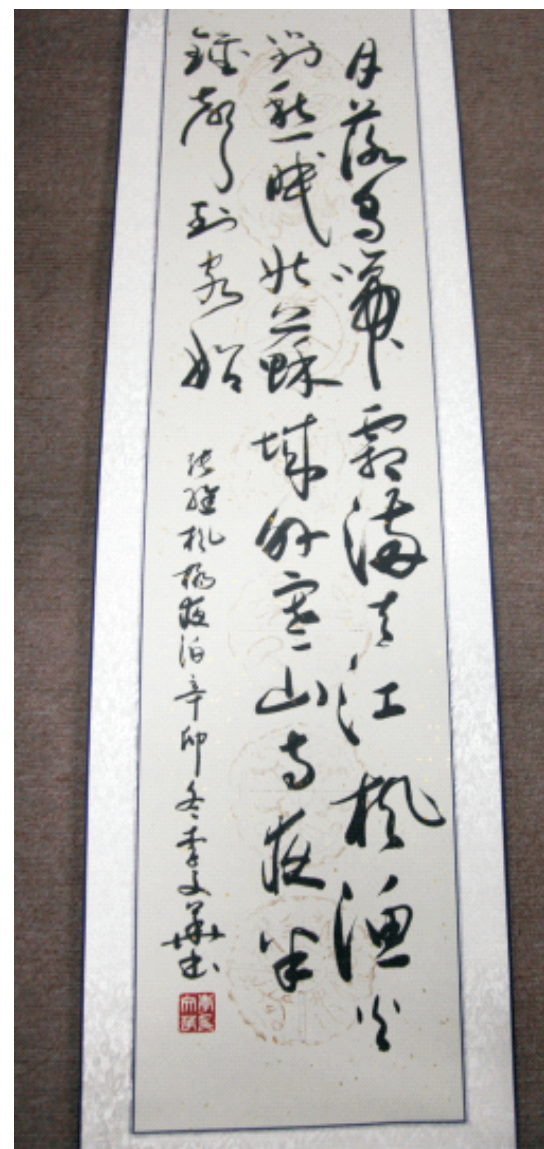 月落烏啼霜滿天江楓漁火
對愁眠姑蘇城外寒山寺夜半
鐘聲到客船
張繼楓橋夜泊辛卯冬李文華書